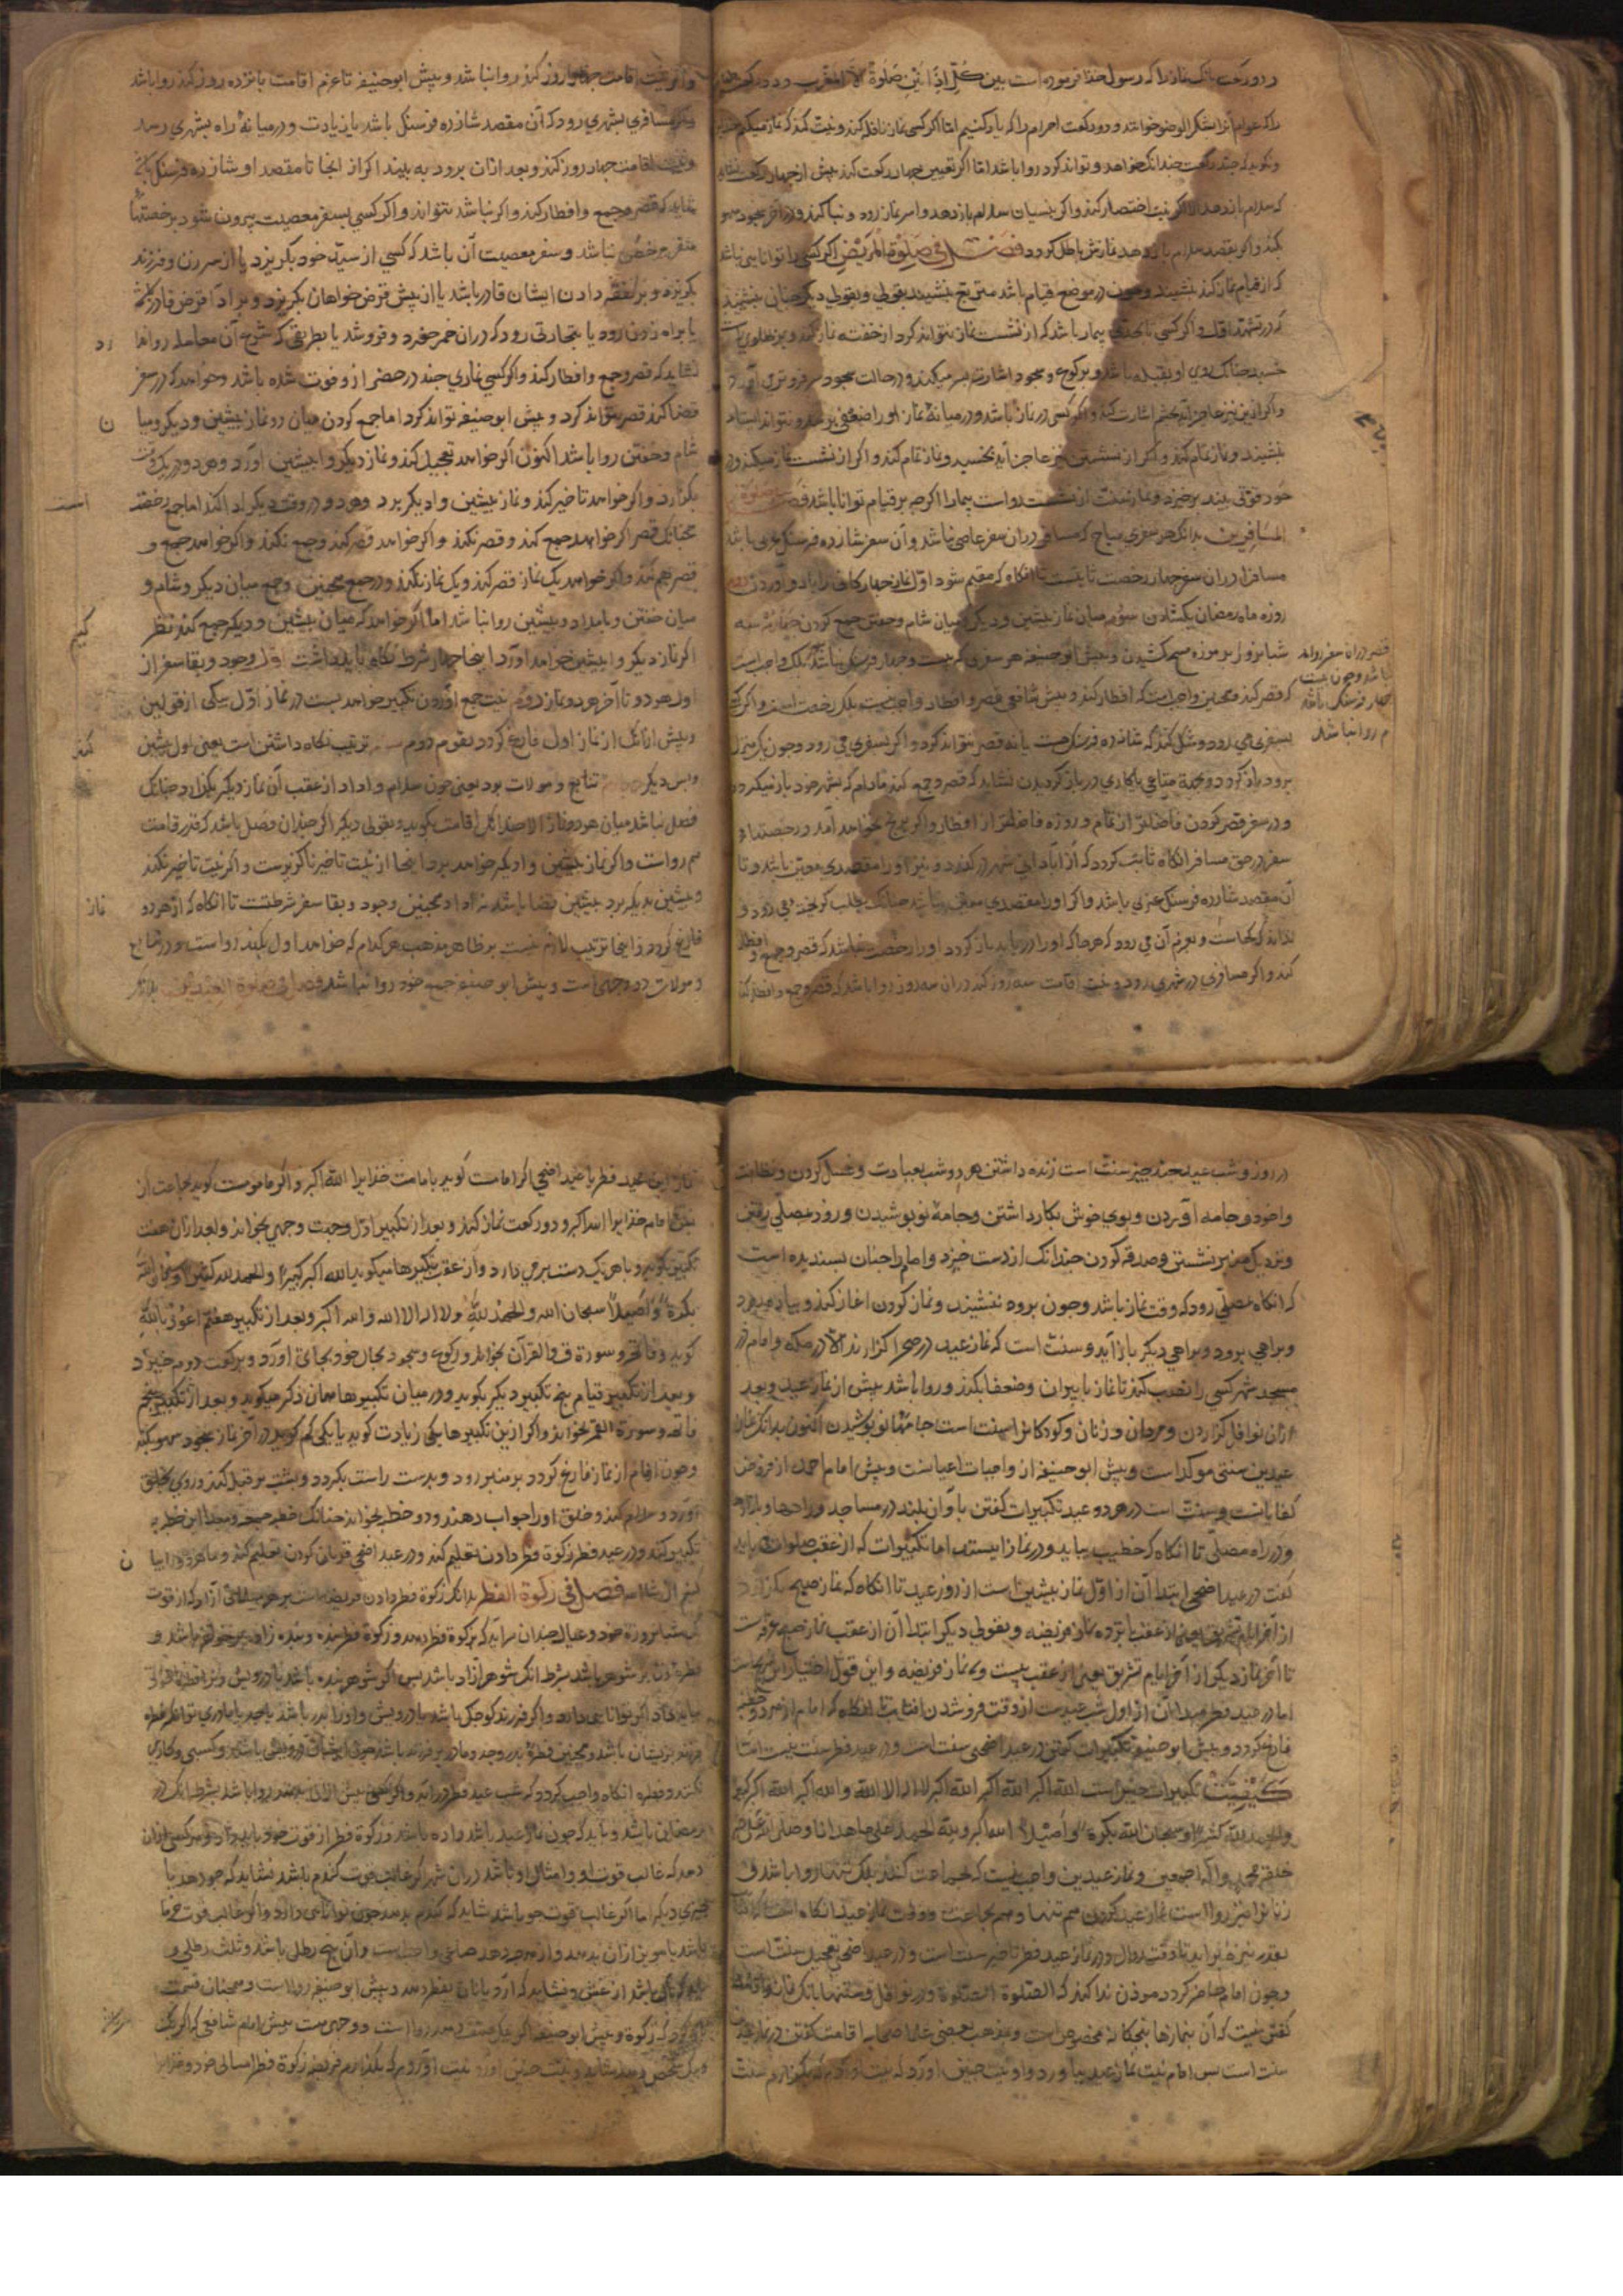 و دو رکعت بانگ نماز را که رسول خدا فرموده است بین کل اذانین صلوة الا المغرب و دو رکعت
را که عوام آنرا شکر الوضو خوانند و دو رکعت احرام را که یاد کنیم اما اگر کسی نماز نافله کند و نیت کند که نماز میکنم
و نگوید که چند رکعت چندانک خواهد و تواند کرد روا باشد اما اگر تعیین چهار رکعت کند پیش از چهار رکعت
که سلام باز دهد الا اگر نیت اختصار کند و اگر بنسیان سلام باز دهد و اسر نماز رود و بنا کند و در آخر سجود سهو
بکند و اگر بقصد سلام باز دهد نمازش باطل گردد فصل فی صلوة المریض اگر کسی را توانایی نباشد
که از قیام نماز کند بنشیند و چون در موضع قیام باشد متربع بنشیند بقولی و بقولی دیگر چنان بنشیند
که در تشهد اول و اگر کسی تا بحدی بیمار باشد که از نشست نماز نتواند کرد از خفته نماز کند و بر پهلوی راست
خسبد چنانک روی او بقبله باشد و برکوع و سجود اشارت بسر میکند و در حالت سجود سر فروتر می آورد
و اگر ازین نیز عاجز آید بچشم اشارت کند و اگر کسی در نماز باشد و در میانه نماز او را ضعفی برسد و نتواند ایستاد
بنشیند و نماز تمام کند و اگر از نشستن نیز عاجز آید بخسبد و نماز تمام کند و اگر از نشست نماز میکند و در
خود قوتی بیند برخیزد و نماز سنت از نشست رواست بیمار را اگرچه بر قیام توانا باشد فصل صلوة
المسافرین بدانک هر سفری مباح که مسافر در آن سفر عاصی نباشد و آن سفر شانزده فرسنگ عربی باشد
مسافر را در آن سفر چهار رخصت ثابتست تا آنگاه که مقیم شود اول نماز چهارگانی را با دو آوردن دوم
روزه ماه رمضان بگشادن سوم میان نماز پیشین و دیگر و میان شام و خفتن جمع کردن چهارم سه
شبانروز بر موزه مسح کشیدن و پیش ابوحنیفه هر سفری که بیست و چهار فرسنگ باشد بلک واجب است
که قصر کند و همچنین واجب است که افطار کند و پیش شافعی قصر و افطار واجب نیست بلک رخصت است و اگر کسی
بسفری می رود و شک کند که شانزده فرسنگ هست یا نه قصر نتواند کرد و اگر بسفری می رود و چون یک منزل
برود باز گردد و بجهة متاعی یا کاری در باز گردیدن نشاید که قصر و جمع کند مادام که بشهر خود باز میگردد
و در سفر قصر کردن فاضلتر از تمام و روزه فاضلتر از افطار و اگر برنج نخواهد آمد و رخصتهای
سفر در حق مسافر آنگاه ثابت گردد که از آبادانی شهر درگذرد و نیز او را مقصدی معین باشد و تا
آن مقصد شانزده فرسنگ عربی باشد و اگر او را مقصدی معین نباشد چنانک بطلب گریخته می رود و
نداند که کجاست و بعزم آن می رود که هر جا که او را دریابد باز گردد او را رخصت نباشد که قصر و جمع و افطار
کند و اگر مسافری در شهری رود و نیت اقامت سه روز کند در آن سه روز روا باشد که قصر و جمع و افطار کند
قصر در آن سفر روا
باشد و چون بیست
چهار فرسنگ باشد
روا نباشد
و اگر نیت اقامت چهار روز کند روا نباشد و پیش ابوحنیفه تا عزم اقامت پانزده روز نکند روا باشد
و اگر مسافری بشهری رود که آن مقصد شانزده فرسنگ باشد یا زیادت و در میانه راه بشهری رسد
و نیت اقامت چهار روز کند و بعد از آن برود به بیند اگر از آنجا تا مقصد او شانزده فرسنگ
نشاید که قصر و جمع و افطار کند و اگر نباشد نتواند و اگر کسی بسفر معصیت بیرون شود برخصتها
مترخص نباشد و سفر معصیت آن باشد که کسی از سید خود بگریزد یا از سر زن و فرزند
بگریزد و بر نفقه دادن ایشان قادر باشد یا از پیش قرض خواهان بگریزد و بر ادا قرض قادر
یا براه زدن رود یا بتجارتی رود که در آن خمر خرد و فروشد یا بطریقی که شرع آن معامله روا
نشاید که قصر و جمع و افطار کند و اگر کسی نمازی چند در حضر از و فوت شده باشد و خواهد که در سفر
قضا کند قصر نتواند کرد و پیش ابوحنیفه تواند کرد اما جمع کردن میان دو نماز پیشین و دیگر و میان
شام و خفتن روا باشد اکنون اگر خواهد تعجیل کند و نماز دیگر وا پیشین آورد و هر دو در یک وقت
بگزارد و اگر خواهد تاخیر کند و نماز پیشین وا دیگر برد و هر دو در وقت دیگر ادا کند اما جمع رخصتست
چنانک قصر اگر خواهد جمع کند و قصر نکند و اگر خواهد قصر کند و جمع نکند و اگر خواهد جمع و
قصر هم کند و اگر خواهد یک نماز قصر کند و یک نماز نکند و در جمع همچنین و جمع میان دیگر و شام و
میان خفتن و بامداد و پیشین روا نباشد اما اگر خواهد که میان پیشین و دیگر جمع کند نظر کنیم
اگر نماز دیگر وا پیشین خواهد آورد اینجا چهار شرط نگاه باید داشت اول وجود و بقا سفر از
اول هر دو تا آخر هر دو نماز دوم نیت جمع آوردن تکبیر خواهد بست در نماز اول سیکی ازقلین
و پیش از آنک از نماز اول فارغ گردد بقوم دوم سه ترتیب نگاه داشتن است یعنی اول پیشین
و پس دیگر تتابع و موالات بود یعنی چون سلام وا داد از عقب آن نماز دیگر بگزارد چنانک
فصل نباشد میان هر دو نماز الا چندانک اقامت بگوید و بقولی دیگر اگر چندان فصل باشد که قدر قامت
هم رواست و اگر نماز پیشین وا دیگر خواهد برد اینجا از نیت تاخیر ناگزیرست و اگر نیت تاخیر نکند
و پیشین بدیگر برد پیشین قضا باشد نه ادا و همچنین وجود و بقا سفر شرطست تا آنگاه که از هر دو نماز
فارغ گردد و اینجا ترتیب لازم نیست بر ظاهر مذهب هر کدام که خواهد اول بکند رواست و در تتابع
و موالات دو وجهی است و پیش ابوحنیفه جمع خود روا نباشد فصل فی صلوة العیدین بدانک
در روز و شب عید چند چیز سنت است زنده داشتن هر دو شب بعبادت و غسل کردن و نظافت
وا خود و جامه آوردن و بوی خوش بکار داشتن و جامه نو پوشیدن و زود بمصلی رفتن
و نزدیک منبر نشستن و صدقه کردن چندانک از دست خیزد و امام را چنان پسندیده است
که آنگاه بمصلی رود که وقت نماز باشد و چون برود ننشیند و نماز کردن آغاز کند و پیاده رود
و براهی برود و براهی دیگر باز آید و سنت است که نماز عید در صحرا گزارند الا در مکه و امام در
مسجد شهر کسی را نصب کند تا نماز با پیران و ضعفا بکند و روا باشد پیش از نماز عید و بعد
از آن نوافل گزاردن و مردان و زنان و کودکان را سنت است جامهٔ نو پوشیدن اکنون بدانک نماز
عیدین سنتی موکد است و پیش ابوحنیفه از واجبات اعیانست و پیش امام احمد از فروض
کفایاتست و سنت است در هر دو عید تکبیرات گفتن باواز بلند در مساجد و راهها و بازارها
و در راه مصلی تا آنگاه که خطیب بیاید و در نماز ایستد اما تکبیرات که از عقب صلوات می باید
گفت در عید اضحی ابتدا آن از اول نماز پیشین است از روز عید تا آنگاه که نماز صبح بگزارد
از آخر ایام تشریق یعنی از عقب پانزده نماز فریضه و بقولی دیگر ابتدا آن از عقب نماز صبح عرفه است
تا آخر نماز دیگر از آخر ایام تشریق یعنی از عقب بیست و سه نماز فریضه و این قول اختیار
اما در عید فطر مبدا آن از اول شب عید ست از وقت فروشدن آفتاب تا آنگاه که امام از هر دو خطبه
فارغ گردد و پیش ابوحنیفه تکبیرات گفتن در عید اضحی سنت است و در عید فطر سنت نیست اما
کیفیت تکبیرات چنین است الله اکبر الله اکبر الله اکبر لا اله الا الله و الله اکبر الله اکبر کبیرا
والحمد لله کثیرا و سبحان الله بکرة و اصیلا الله اکبر و لله الحمد علی ما هدانا و صلی الله علی خیر
خلقه محمد و آله اجمعین و نماز عیدین واجب نیست که بجماعت کنند بلک تنها روا باشد و
زنان را نیز رواست نماز عید کردن هم تنها و هم بجماعت و وقت نماز عید آنگاه است که آفتاب
بقدر نیزه برآید تا وقت زوال و در نماز عید فطر تاخیر سنت است و در عید اضحی تعجیل سنت است
و چون امام حاضر گردد موذن ندا کند که الصلوة الصلوة و در نوافل و سنتها بانگ نماز و اقامت
گفتن نیست که آن بنمازها پنجگانه مخصوص است و مذهب بعضی علما صحابه اقامت گفتن در نماز عید
سنت است پس امام نیت نماز عید بیاورد و او نیت چنین آورد که نیت آوردم که بگزارم سنت
نماز این عید فطر یا عید اضحی اگر امامست گوید بامامت خدایرا الله اکبر و اگر مامومست گوید بجماعت از
پس امام خدایرا الله اکبر و دو رکعت نماز کند و بعد از تکبیر اول وجهت وجهی بخواند و بعد از آن هفت
تکبیر بگوید و با هر یک دست بر می دارد و از عقب تکبیرها میگوید الله اکبر کبیرا والحمد لله کثیرا و سبحان الله
بکرة و اصیلا سبحان الله والحمد لله ولا اله الا الله والله اکبر و بعد از تکبیر هفتم اعوذ بالله
گوید و فاتحه و سورة ق والقرآن بخواند و رکوع و سجود بحال خود بجای آورد و برکعت دوم خیزد
و بعد از تکبیر قیام پنج تکبیر دیگر بگوید و در میان تکبیرها همان ذکر میگوید و بعد از تکبیر پنجم
فاتحه و سورة القمر بخواند و اگر ازین تکبیرها یکی زیادت گوید یا یکی کم گوید در آخر نماز سجود سهو بکند
و چون امام از نماز فارغ گردد بر منبر رود و بدست راست بگردد و پشت بر قبله کند و روی بخلق
آورد و سلام کند و خلق او را جواب دهند و دو خطبه بخواند چنانک خطبه جمعه و مبدا این خطبه
تکبیر کند و در عید فطر زکوة فطر دادن تعلیم کند و در عید اضحی قربان کردن تعلیم کند و ما هر دو را بیان
کنیم ان شاء الله فصل فی زکوة الفطر بدانک زکوة فطر دادن فریضه است بر هر مسلمانی آزاد که از قوت
یک شبانروزه خود و عیال چندان سر آید که بزکوة فطر دهد و زکوة فطر بنده و بنده زاده بر خواجه باشد و
فطره زن بر شوهر باشد بشرط آنک شوهر آزاد باشد پس اگر شوهر بنده باشد یا درویش و زن
بباید داد اگر توانایی دارد و اگر فرزند کوچک باشد یا درویش و او را پدر باشد یا جد یا مادری توانگر فطره
فرزند بر ایشان باشد و همچنین فطرهٔ پدر و جد و مادر بر فرزند باشد چون ایشان درویش باشند و کسبی و کاری
نکنند و فطره آنگاه واجب گردد که شب عید فطر درآید و اگر کسی پیش از آن بدهد روا باشد بشرط آنک در
رمضان باشد و باید که چون نماز عید باشد داده باشد و زکوة فطر از قوت خود باید داد و هر کسی از آن
دهد که غالب قوت او و امثال او باشد در آن شهر اگر غالب قوت گندم باشد نشاید که جو دهد یا
چیزی دیگر اما اگر غالب قوت جو باشد شاید که گندم بدهد چون توانایی دارد و اگر غالب قوت خرما
باشد یا مویز از آن بدهد و از هر چه دهد صاعی واجب است و آن پنج رطل باشد و ثلث رطلی و
باید که پاک باشد از غش و نشاید که آرد یا نان بفطر دهد و پیش ابوحنیفه رواست و همچنان قیمت
زکوة و پیش ابوحنیفه اگر قیمت دهد رواست و وجهی هست پیش امام شافعی که اگر یک
و یک شخص دهد شاید و نیت چنین آورد نیت آوردم که بگذارم فریضه زکوة فطر امسالی خود و خدایرا